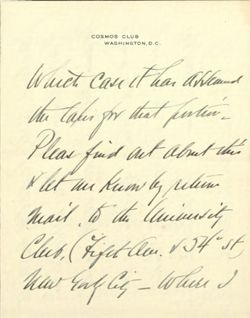 COSMOS CLUB
WASHINGTON, D.C.
Which case it has assumed
the for that portion.
Pleas find out about this
& let me know by return
mail, to the University
Club, (Fifth Ave. & 54" st)
New York City – Where I